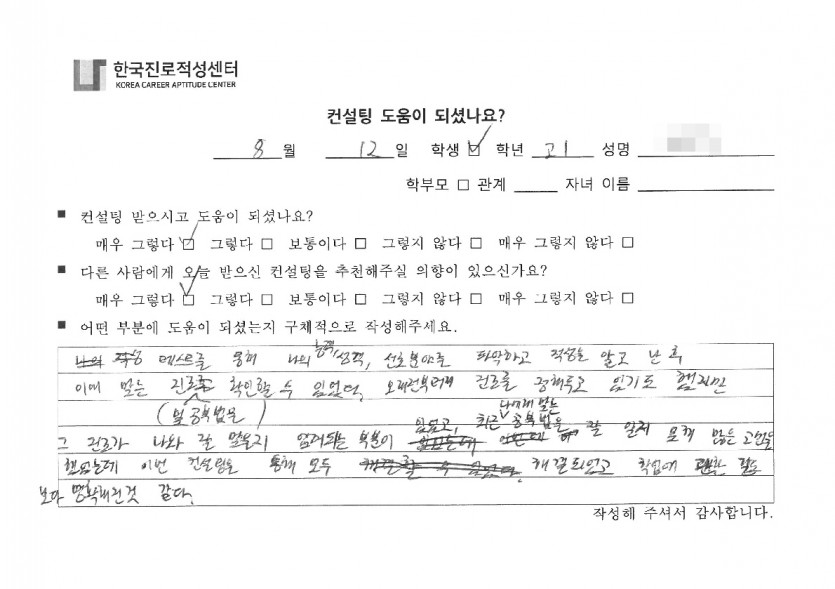 한국진로적성센터
KOREA CAREER APTITUDE CENTER
컨설팅 도움이 되셨나요?
8 월 12 일 학생 ☑ 학년 고1 성명
학부모 □ 관계 자녀 이름
■ 컨설팅 받으시고 도움이 되셨나요?
매우 그렇다 ☑ 그렇다 □ 보통이다 □ 그렇지 않다 □ 매우 그렇지 않다 □
■ 다른 사람에게 오늘 받으신 컨설팅을 추천해주실 의향이 있으신가요?
매우 그렇다 ☑ 그렇다 □ 보통이다 □ 그렇지 않다 □ 매우 그렇지 않다 □
■ 어떤 부분에 도움이 되셨는지 구체적으로 작성해주세요.
적성 테스트를 통해 나의 능력, 성격, 선호분야를 파악하고 적성을 알고 난 후
이에 맞는 진로를 확인할 수 있었다. 오래전부터 진로를 정해두고 있기도 했지만
(및 공부법을)
그 진로가 나와 잘 맞을지 염려되는 부분이 있었고, 최근 나에게 맞는 공부법을 잘 알지 못해 많은 고민을
했었는데 이번 컨설팅을 통해 모두 해결되었고 학업에 관한 길도
보다 명확해진것 같다.
작성해 주셔서 감사합니다.